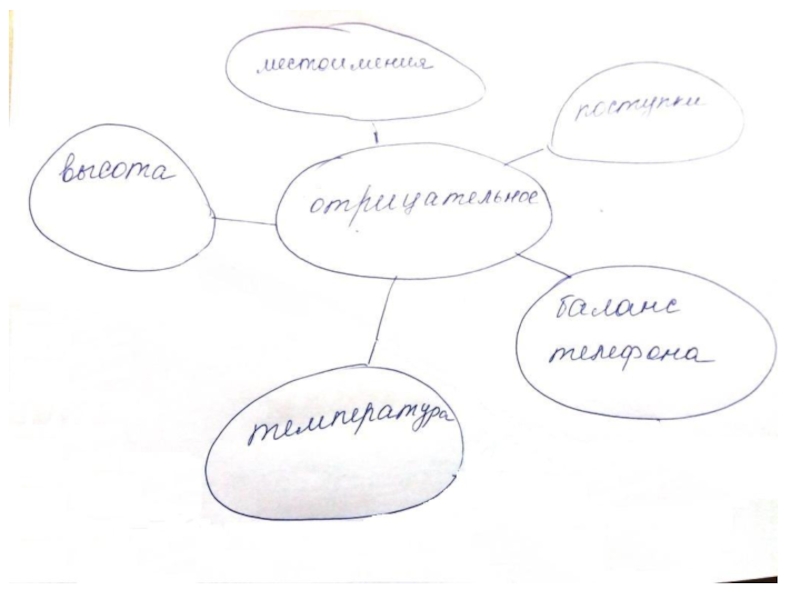 местоимения
поступки
высота
отрицательное
баланс
телефона
температура